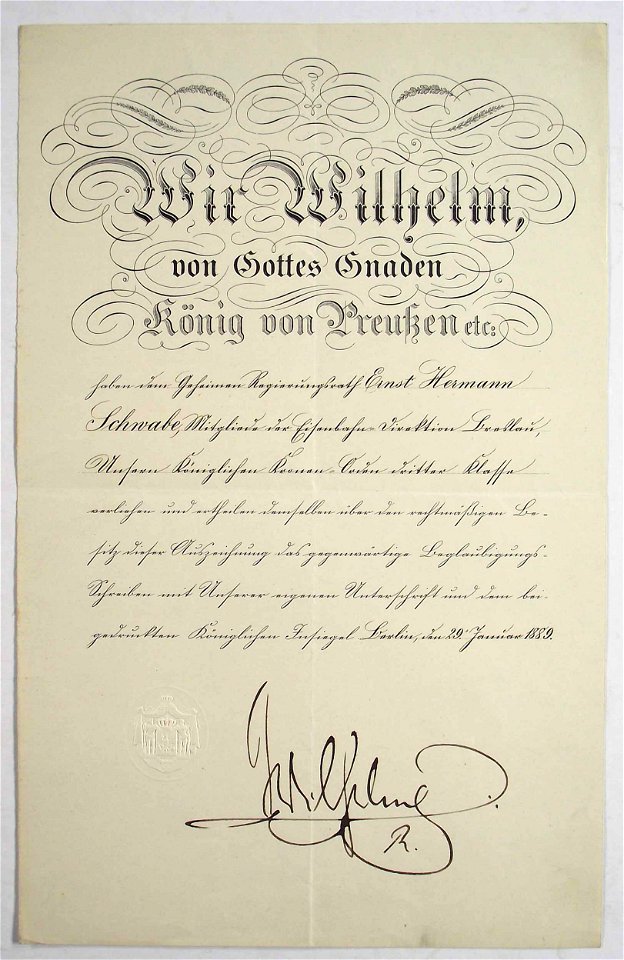 Wir Wilhelm,
von Gottes Gnaden
König von Preußen etc:
haben dem Geheimen Regierungsrath Ernst Hermann
Schwabe, Mitgliede der Eisenbahn-Direktion Breslau,
Unsern Königlichen Kronen-Orden dritter Klasse
verliehen und ertheilen demselben über den rechtmäßigen Be-
sitz dieser Auszeichnung das gegenwärtige Beglaubigungs-
Schreiben mit Unserer eigenen Unterschrift und dem bei-
gedruckten Königlichen Insiegel Berlin, den 29. Januar 1889.
Wilhelm
R.